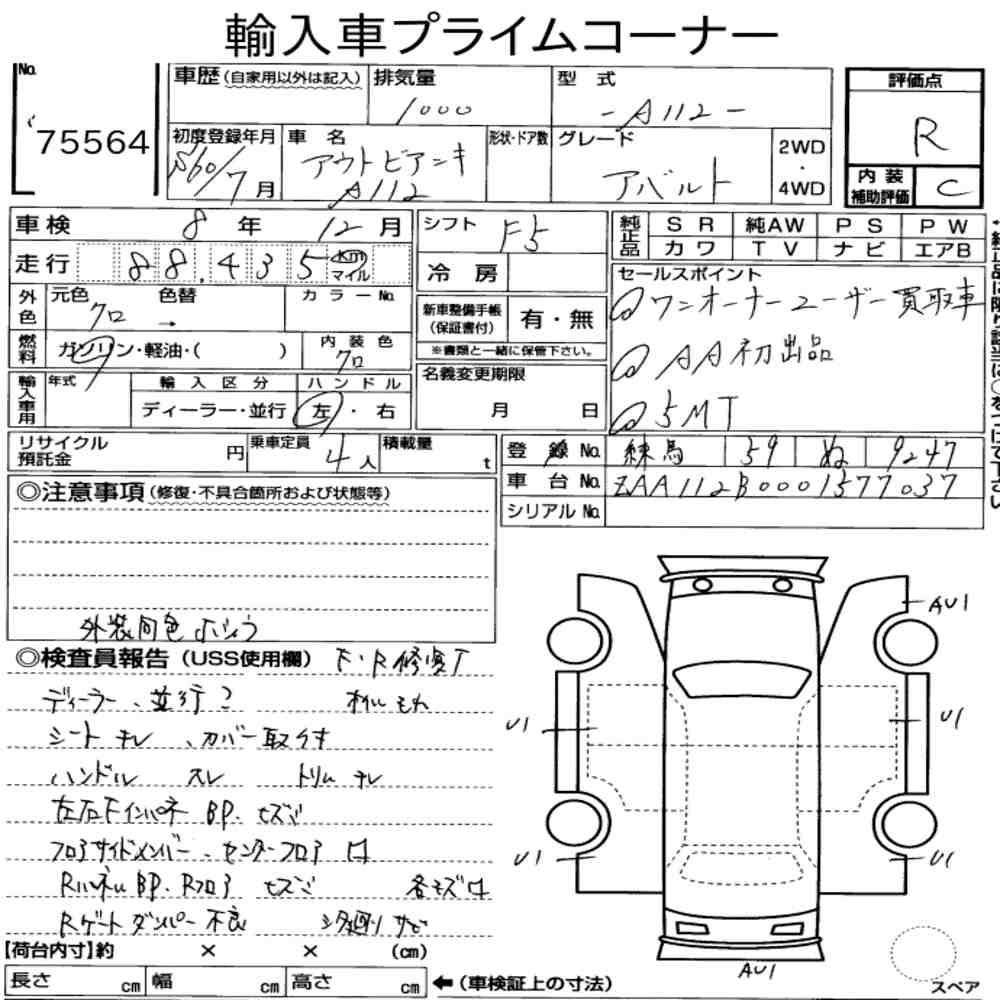 輸入車プライムコーナー
No.
75564
車歴 (自家用以外は記入)
排気量
1000
型 式
- A112 -
評価点
R
初度登録年月
S60/7月
車 名
アウトビアンキ
A112
形状・ドア数
グレード
アバルト
2WD
・
4WD
内 装
補助評価
C
車検 8年 12月
シフト F5
純正品
SR 純AW PS PW
カワ TV ナビ エアB
走行 88,435 km マイル
冷 房
セールスポイント
ワンオーナーユーザー買取車
AA初出品
5MT
外色
元色
クロ →
色替
カラーNo.
新車整備手帳
(保証書付)
有・無
※書類と一緒に保管下さい。
燃料
ガソリン・軽油・( )
内 装 色
クロ
輸入車用
年式
輸 入 区 分
ディーラー・並行
ハ ン ド ル
左・右
名義変更期限
月 日
リサイクル
預託金
円
乗車定員
4人
積載量
t
登 録 No. 練馬 59 ぬ 9247
車 台 No. ZAA112B0001577037
シリアル No.
◎注意事項 (修復・不具合箇所および状態等)
外装同色
◎検査員報告 (USS使用欄) F・R修復
ディーラー、並行? オイルもれ
シート キレ、カバー取付
ハンドル スレ トリム キレ
左右Fインパネ BP. ヒズミ
フロアサイドメンバー、センターフロア
Rパネル BP. Rフロア ヒズミ
Rゲート ダンパー 不良 シタ廻り サビ
【荷台内寸】約 × × (cm)
長さ cm 幅 cm 高さ cm
←(車検証上の寸法)
AU1
U1
U1
U1
U1
AU1
スペア